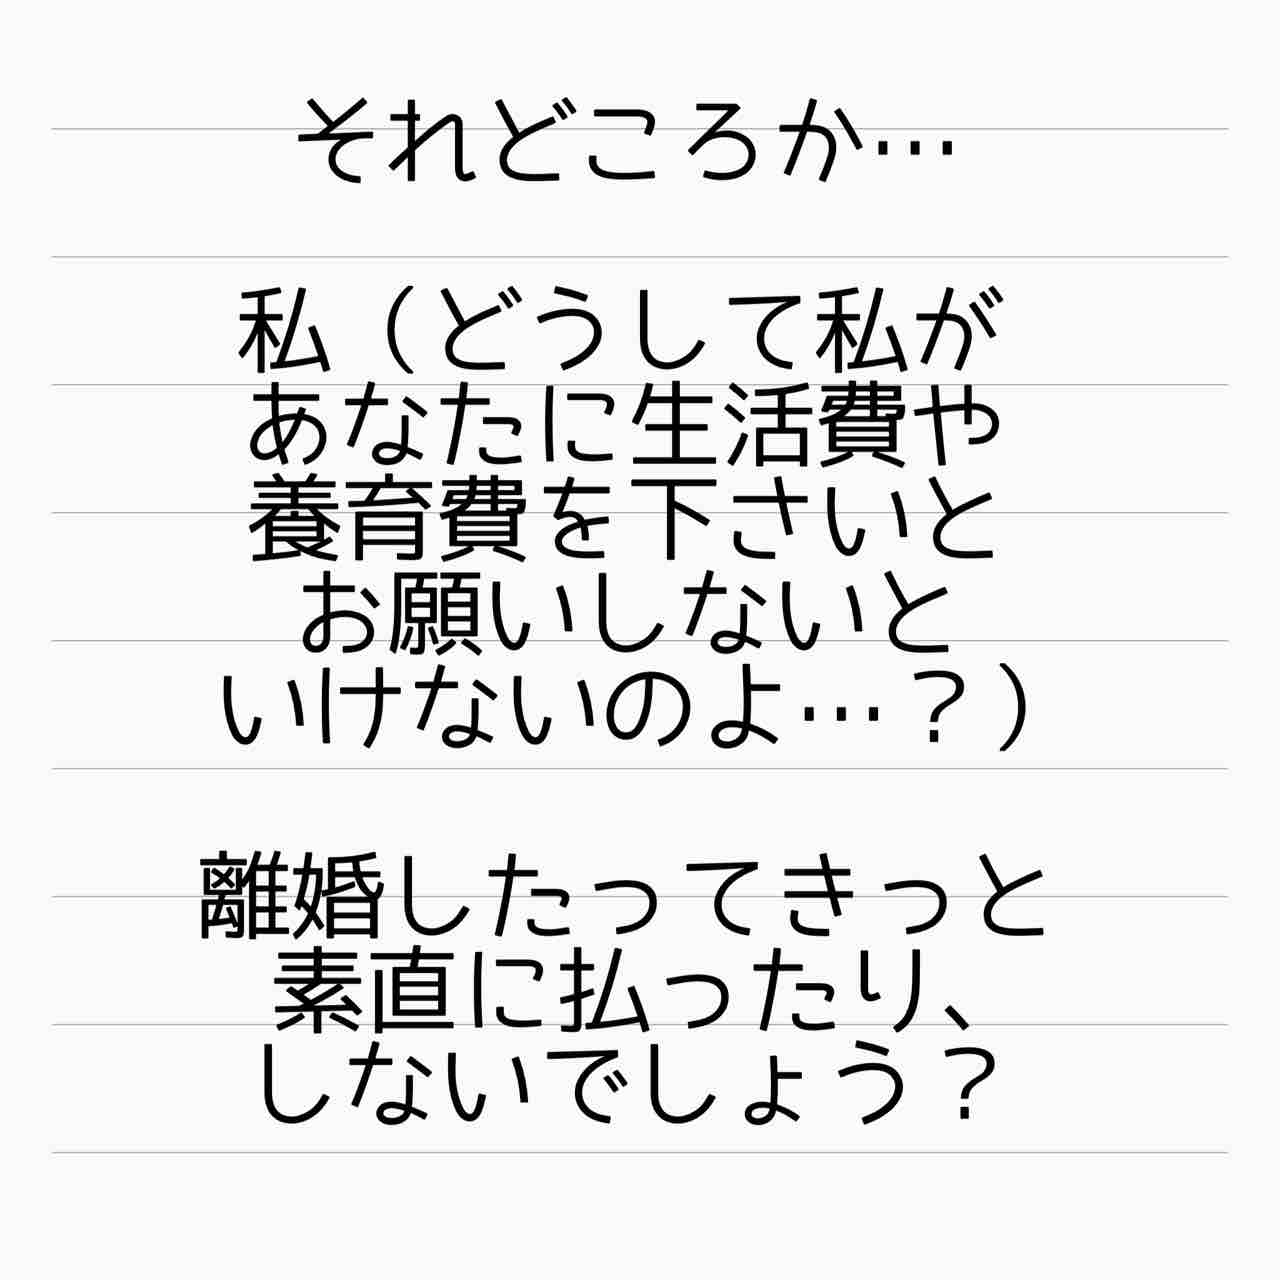 それどころか…
私（どうして私が
あなたに生活費や
養育費を下さいと
お願いしないと
いけないのよ…？）
離婚したってきっと
素直に払ったり、
しないでしょう？